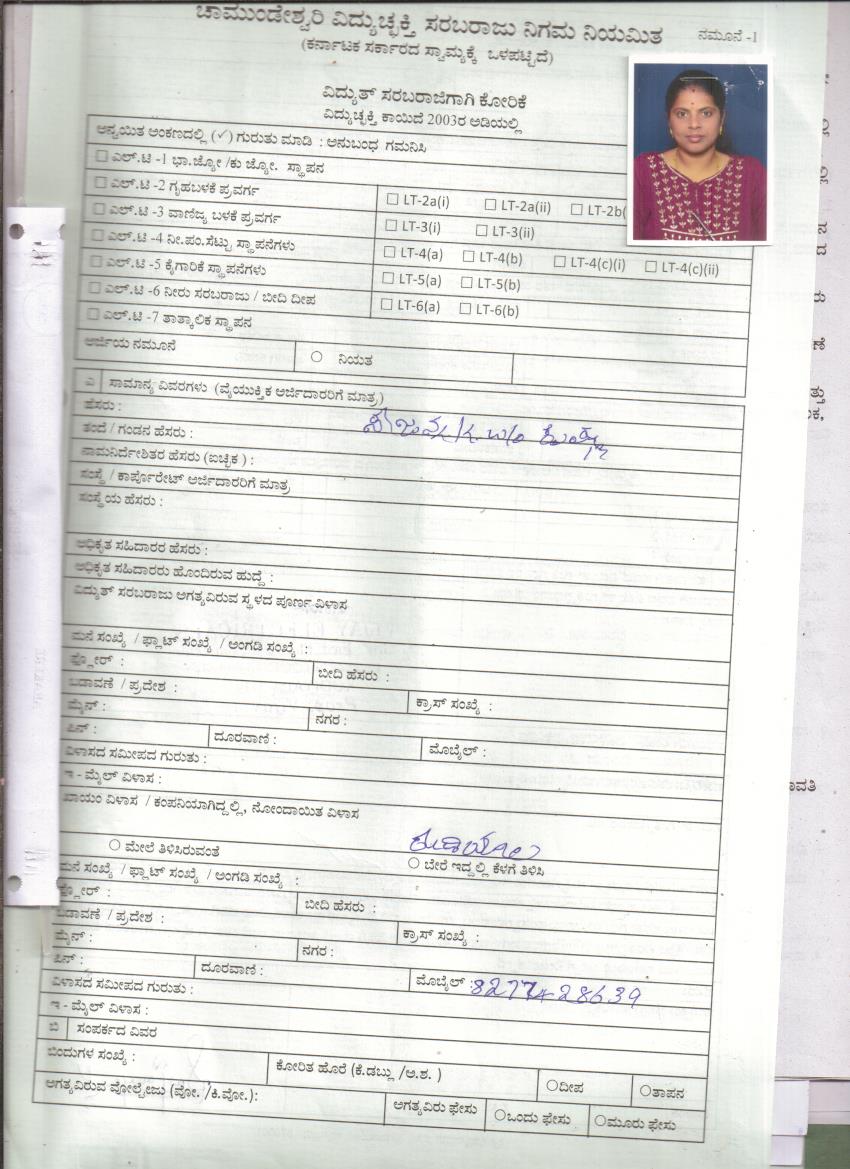 ಚಾಮುಂಡೇಶ್ವರಿ ವಿದ್ಯುಚ್ಛಕ್ತಿ ಸರಬರಾಜು ನಿಗಮ ನಿಯಮಿತ
ನಮೂನೆ -1
(ಕರ್ನಾಟಕ ಸರ್ಕಾರದ ಸ್ವಾಮ್ಯಕ್ಕೆ ಒಳಪಟ್ಟಿದೆ)
ವಿದ್ಯುತ್ ಸರಬರಾಜಿಗಾಗಿ ಕೋರಿಕೆ
ವಿದ್ಯುಚ್ಛಕ್ತಿ ಕಾಯಿದೆ 2003ರ ಅಡಿಯಲ್ಲಿ
ಅನ್ವಯಿತ ಅಂಕಣದಲ್ಲಿ (✓) ಗುರುತು ಮಾಡಿ : ಅನುಬಂಧ ಗಮನಿಸಿ
☐ ಎಲ್.ಟಿ -1 ಭಾ.ಜ್ಯೋ /ಕು ಜ್ಯೋ. ಸ್ಥಾಪನ
☐ ಎಲ್.ಟಿ -2 ಗೃಹಬಳಕೆ ಪ್ರವರ್ಗ ☐ LT-2a(i) ☐ LT-2a(ii) ☐ LT-2b(
☐ ಎಲ್.ಟಿ -3 ವಾಣಿಜ್ಯ ಬಳಕೆ ಪ್ರವರ್ಗ ☐ LT-3(i) ☐ LT-3(ii)
☐ ಎಲ್.ಟಿ -4 ನೀ.ಪಂ.ಸೆಟ್ಟು ಸ್ಥಾಪನೆಗಳು ☐ LT-4(a) ☐ LT-4(b) ☐ LT-4(c)(i) ☐ LT-4(c)(ii)
☐ ಎಲ್.ಟಿ -5 ಕೈಗಾರಿಕೆ ಸ್ಥಾಪನೆಗಳು ☐ LT-5(a) ☐ LT-5(b)
☐ ಎಲ್.ಟಿ -6 ನೀರು ಸರಬರಾಜು / ಬೀದಿ ದೀಪ ☐ LT-6(a) ☐ LT-6(b)
☐ ಎಲ್.ಟಿ -7 ತಾತ್ಕಾಲಿಕ ಸ್ಥಾಪನ
ಅರ್ಜಿಯ ನಮೂನೆ ○ ನಿಯತ
ಎ ಸಾಮಾನ್ಯ ವಿವರಗಳು (ವೈಯುಕ್ತಿಕ ಅರ್ಜಿದಾರರಿಗೆ ಮಾತ್ರ)
ಹೆಸರು :
ತಂದೆ / ಗಂಡನ ಹೆಸರು :
ನಾಮನಿರ್ದೇಶಿತರ ಹೆಸರು (ಐಚ್ಛಿಕ ) :
ಸಂಸ್ಥೆ / ಕಾರ್ಪೊರೇಟ್ ಅರ್ಜಿದಾರರಿಗೆ ಮಾತ್ರ
ಸಂಸ್ಥೆಯ ಹೆಸರು :
ಅಧಿಕೃತ ಸಹಿದಾರರ ಹೆಸರು :
ಅಧಿಕೃತ ಸಹಿದಾರರು ಹೊಂದಿರುವ ಹುದ್ದೆ :
ವಿದ್ಯುತ್ ಸರಬರಾಜು ಅಗತ್ಯವಿರುವ ಸ್ಥಳದ ಪೂರ್ಣ ವಿಳಾಸ
ಮನೆ ಸಂಖ್ಯೆ / ಫ್ಲಾಟ್ ಸಂಖ್ಯೆ / ಅಂಗಡಿ ಸಂಖ್ಯೆ :
ಫ್ಲೋರ್ : ಬೀದಿ ಹೆಸರು :
ಬಡಾವಣೆ / ಪ್ರದೇಶ : ಕ್ರಾಸ್ ಸಂಖ್ಯೆ :
ಮೈನ್ : ನಗರ :
ಪಿನ್ : ದೂರವಾಣಿ : ಮೊಬೈಲ್ :
ವಿಳಾಸದ ಸಮೀಪದ ಗುರುತು :
ಇ - ಮೈಲ್ ವಿಳಾಸ :
ಖಾಯಂ ವಿಳಾಸ / ಕಂಪನಿಯಾಗಿದ್ದಲ್ಲಿ, ನೋಂದಾಯಿತ ವಿಳಾಸ
○ ಮೇಲೆ ತಿಳಿಸಿರುವಂತೆ ○ ಬೇರೆ ಇದ್ದಲ್ಲಿ ಕೆಳಗೆ ತಿಳಿಸಿ
ಮನೆ ಸಂಖ್ಯೆ / ಫ್ಲಾಟ್ ಸಂಖ್ಯೆ / ಅಂಗಡಿ ಸಂಖ್ಯೆ :
ಫ್ಲೋರ್ : ಬೀದಿ ಹೆಸರು :
ಬಡಾವಣೆ / ಪ್ರದೇಶ : ಕ್ರಾಸ್ ಸಂಖ್ಯೆ :
ಮೈನ್ : ನಗರ :
ಪಿನ್ : ದೂರವಾಣಿ : ಮೊಬೈಲ್ : 8277428639
ವಿಳಾಸದ ಸಮೀಪದ ಗುರುತು :
ಇ - ಮೈಲ್ ವಿಳಾಸ :
ಬಿ ಸಂಪರ್ಕದ ವಿವರ
ಬಿಂದುಗಳ ಸಂಖ್ಯೆ : ಕೋರಿತ ಹೊರೆ (ಕೆ.ಡಬ್ಲು /ಅ.ಶ. ) ○ದೀಪ ○ತಾಪನ
ಅಗತ್ಯವಿರುವ ವೋಲ್ಟೇಜು (ವೋ. /ಕಿ.ವೋ.): ಅಗತ್ಯವಿರು ಫೇಸು ○ಒಂದು ಫೇಸು ○ಮೂರು ಫೇಸು